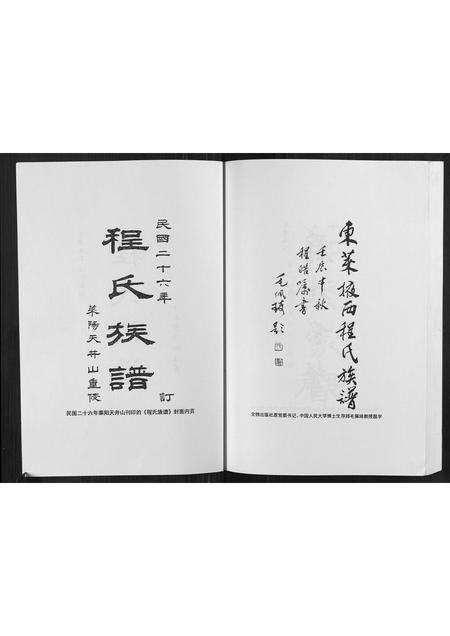 民國二十六年
訂
程氏族譜
萊陽天井山重修
民国二十六年莱阳天井山刊印的《程氏族谱》封面内页
東萊掖西程氏族譜
壬辰中秋
程皓囑書
毛佩琦題
文物出版社原党委书记、中国人民大学博士生导师毛佩琦教授题字